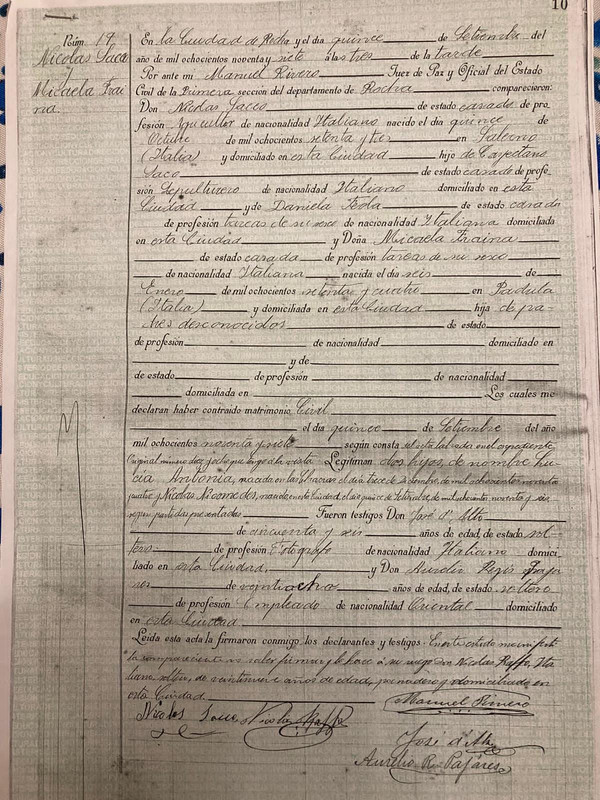 10
Núm. 17
Nicolas Saco
y
Micaela Frai
na.
En la Ciudad de Rocha y el dia quince de Setiembre del
año de mil ochocientos nonenta y siete á las tres de la tarde
Por ante mi Manuel Rivero Juez de Paz y Oficial del Estado
Civil de la Primera sección del departamento de Rocha comparecieron:
Don Nicolas Saco de estado casado de pro-
fesión Agricultor de nacionalidad Italiano nacido el dia quince de
Octubre de mil ochocientos setenta y tres en Salerno
(Italia) y domiciliado en esta Ciudad hijo de Cayetano
Saco de estado casado de profe-
sión Sepulturero de nacionalidad Italiano domiciliado en esta
Ciudad y de Daniela casada
de profesión tareas de su sexo de nacionalidad Italiana domiciliada
en esta Ciudad y Doña Micaela Fraina
de estado casada de profesión tareas de su sexo
de nacionalidad Italiana nacida el dia seis de
Enero de mil ochocientos setenta y cuatro en Padula
(Italia) y domiciliada en esta Ciudad hija de pa-
dres desconocidos de estado
de profesión de nacionalidad domiciliado en
y de
de estado de profesión de nacionalidad
domiciliada en Los cuales me
declaran haber contraido matrimonio Civil
el dia quince de Setiembre del año
mil ochocientos noventa y siete según consta del acta labrada en el expediente
original número diez y ocho que tengo á la vista. Legitiman dos hijos, de nombre Lu-
cia nacida en las el dia trece de de mil ochocientos noventa
y cuatro y Nicolas Nicomedes, nacido en esta Ciudad, el dia quince de Setiembre de mil ochocientos noventa y seis
segun partidas presentadas Fueron testigos Don José d'Alto
de cincuenta y seis años de edad, de estado sol-
tero de profesión Fotógrafo de nacionalidad Italiano domici-
liado en esta Ciudad, y Don Aurelio Regis Paja-
res de veintiocho años de edad, de estado soltero
de profesión Empleado de nacionalidad Oriental domiciliado
en esta Ciudad
Leida esta acta la firmaron conmigo los declarantes y testigos: En este estado manifestó
la compareciente no saber firmar y lo hace á su ruego Don Nicolas Raffo, Ita-
liano, soltero, de veintinueve años de edad, panadero y domiciliado en
esta Ciudad.
Manuel Rivero
Nicolas Saco Nicolas Raffo
José d'Alto
Aurelio R. Pajáres